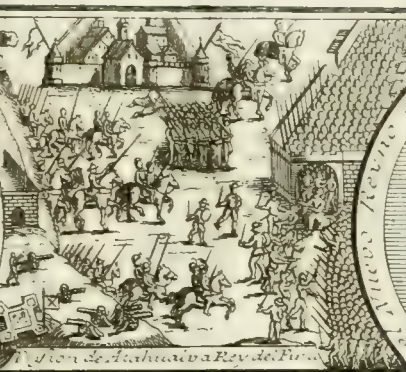 Nuevo Reyno
Prision de Atahualva Rey del Piru